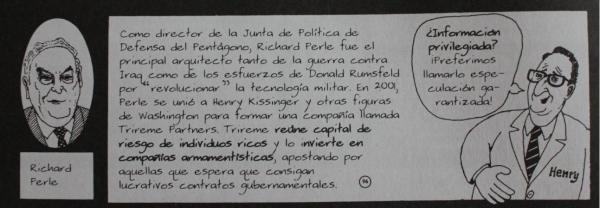 Como director de la Junta de Política de
Defensa del Pentágono, Richard Perle fue el
principal arquitecto tanto de la guerra contra
Iraq como de los esfuerzos de Donald Rumsfeld
por “revolucionar” la tecnología militar. En 2001,
Perle se unió a Henry Kissinger y otras figuras
de Washington para formar una compañía llamada
Trireme Partners. Trireme reúne capital de
riesgo de individuos ricos y lo invierte en
compañías armamentísticas, apostando por
aquellas que espera que consigan
lucrativos contratos gubernamentales.
¿Información
privilegiada?
¡Preferimos
llamarlo espe-
culación ga-
rantizada!
Henry
Richard
Perle